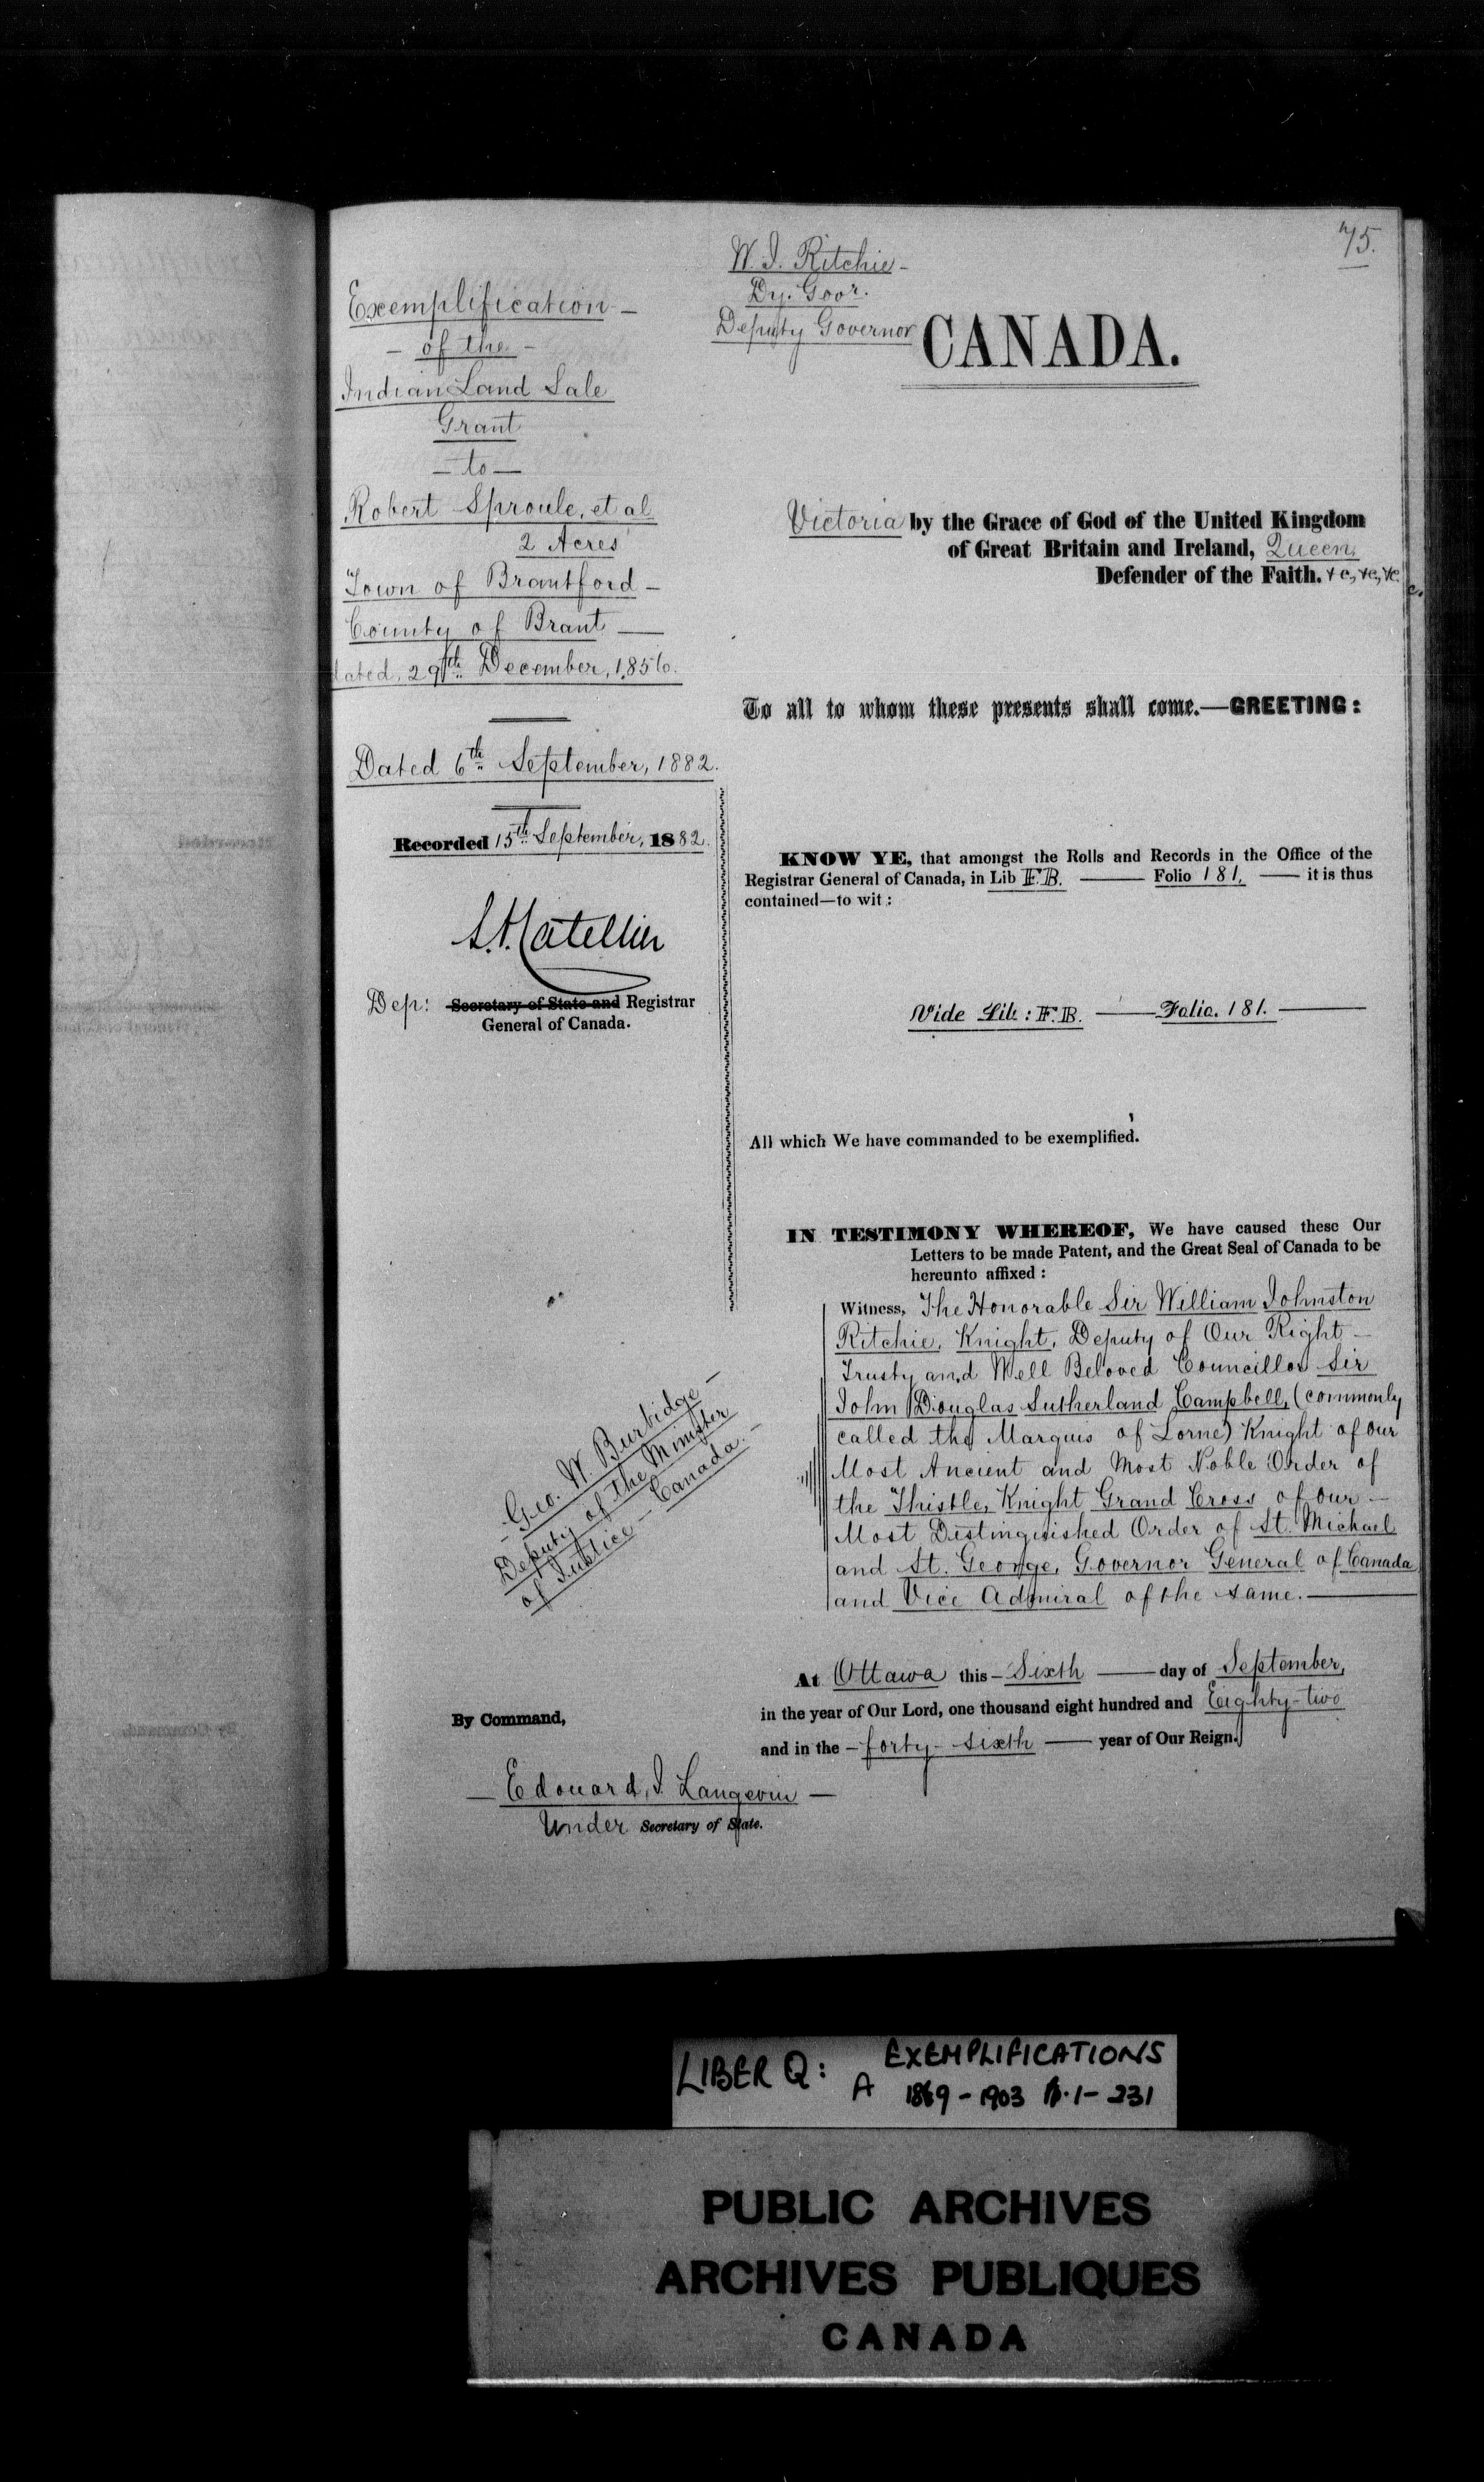 75.
W. J. Ritchie -
Dy. Govr.
Deputy Governor
CANADA.
Exemplification -
- of the -
Indian Land Sale
Grant
- to -
Robert Sproule, et al
2 Acres
Town of Brantford -
County of Brant -
dated, 29th December, 1856.
Dated 6th September, 1882.
Recorded 15th September, 1882.
Dep: Secretary of State and Registrar
General of Canada.
Victoria by the Grace of God of the United Kingdom
of Great Britain and Ireland, Queen,
Defender of the Faith. &c, &c, &c
To all to whom these presents shall come.—GREETING:
KNOW YE, that amongst the Rolls and Records in the Office of the
Registrar General of Canada, in Lib F.B. — Folio 181, — it is thus
contained—to wit:
Vide Lib: F.B. — Folio. 181. —
All which We have commanded to be exemplified.
IN TESTIMONY WHEREOF, We have caused these Our
Letters to be made Patent, and the Great Seal of Canada to be
hereunto affixed:
Witness, The Honorable Sir William Johnston
Ritchie, Knight, Deputy of Our Right -
Trusty and Well Beloved Councillor Sir
John Douglas Sutherland Campbell, (commonly
called the Marquis of Lorne) Knight of our
Most Ancient and Most Noble Order of
the Thistle, Knight Grand Cross of our -
Most Distinguished Order of St. Michael
and St. George, Governor General of Canada
and Vice Admiral of the same. —
- Geo. W. Burbidge -
Deputy of the Minister
of Justice - Canada. -
At Ottawa this - Sixth — day of September,
in the year of Our Lord, one thousand eight hundred and Eighty-two
and in the - forty-sixth — year of Our Reign.
By Command,
- Edouard, J. Langevin -
Under Secretary of State.
LIBER Q: A EXEMPLIFICATIONS
1869-1903 p.1-231
PUBLIC ARCHIVES
ARCHIVES PUBLIQUES
CANADA